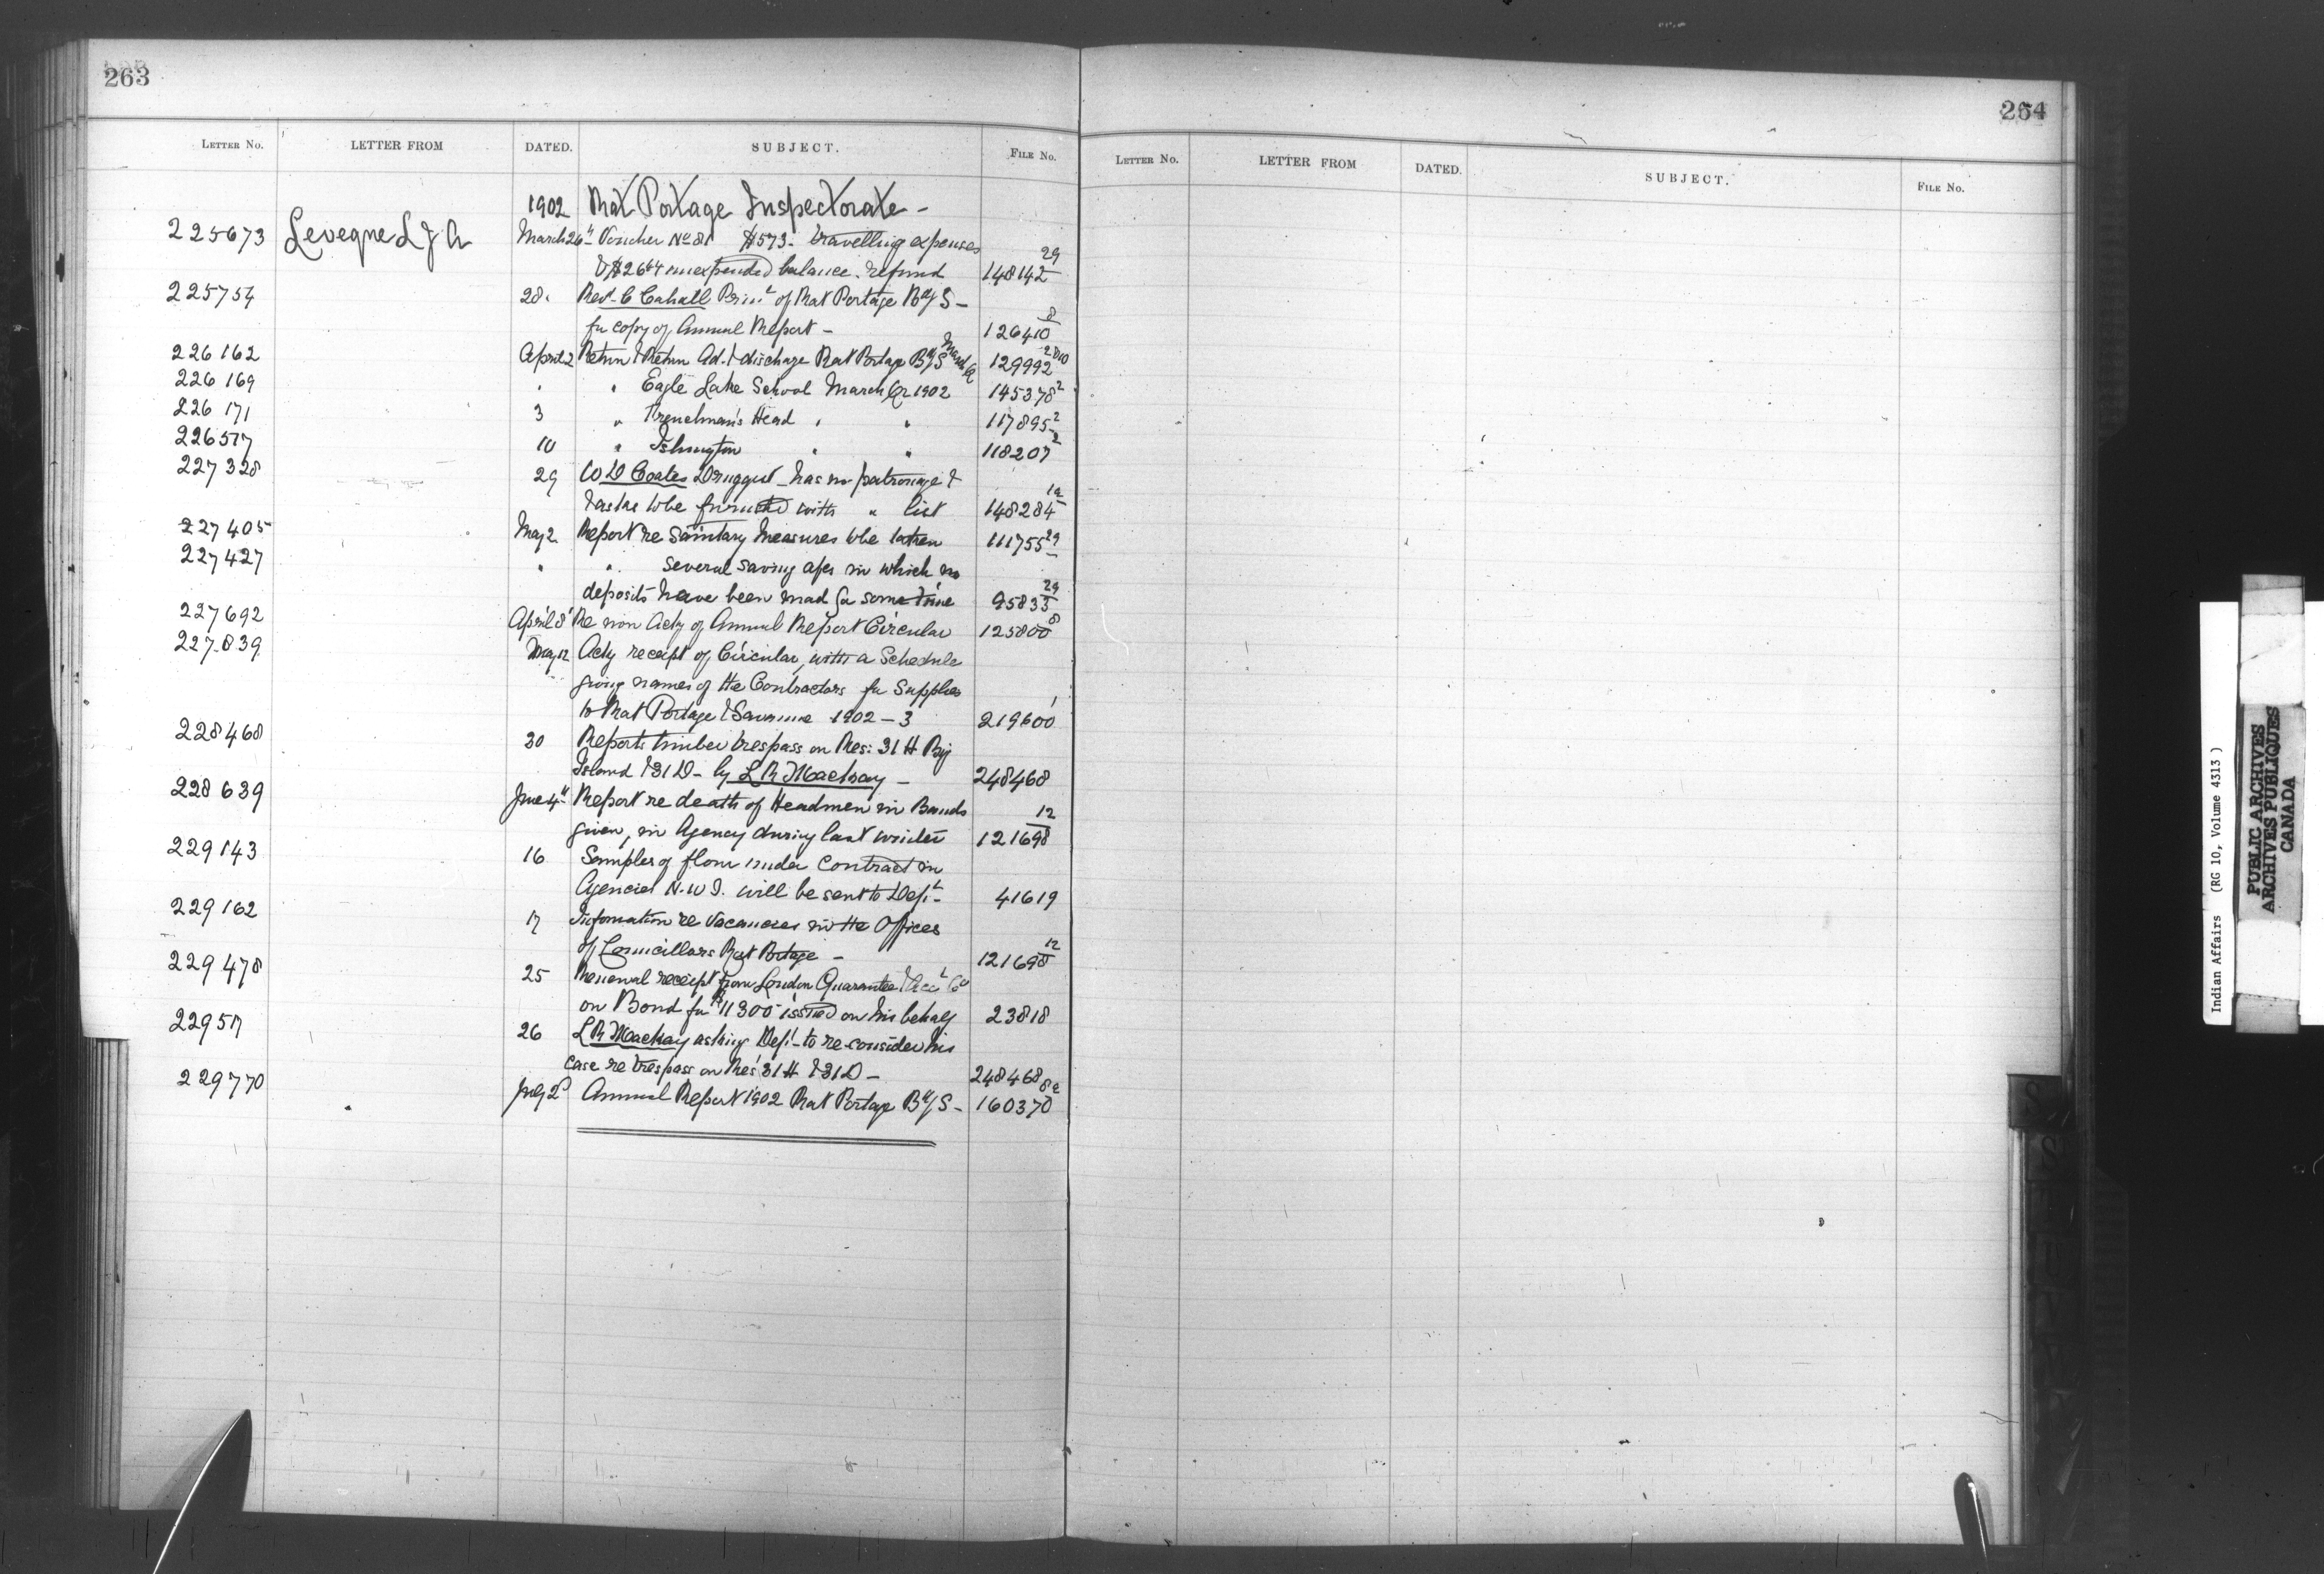 263
LETTER NO. LETTER FROM DATED. SUBJECT. FILE NO.
1902 Rat Portage Inspectorate -
225673 Leveque L J A March 26th Voucher No 81 $573- travelling expenses
& $26 64 unexpended balance. refund 148142 29
225754 28 Revd C Cahill Prinl of Rat Portage Bdg S -
for copy of Annual Report - 126410 8
226162 April 2 Return & Return Ad. & discharge Rat Portage Bdg S March Qr 129992
226169 " " Eagle Lake School March Qr 1902 145378 2
226171 3 " Frenchman's Head " " 117895 2
226517 10 " Islington " " 118207 2
227328 29 W D Coates Druggist - has no patronage &
& asks to be furnished with " list 148284
227405 May 2 Report re Sanitary Measures to be taken 111755 29
227427 " " several saving a/cs in which no
deposits have been mad for some time 95833 29
227692 April 8 Re non Ackg of Annual Report Circular 125800 8
227839 May 12 Ackg receipt of Circular, with a Schedule
giving names of the Contractors for Supplies
to Rat Portage & Savanne 1902-3 219600 1
228468 30 Reports timber trespass on Res: 31 H Big
Island & 31 D - by L R Mackay - 248468
228639 June 4th Report re death of Headmen in Bands
given, in Agency during last winter 121698 12
229143 16 Samples of flour under contract in
Agencies N.W.T. will be sent to Dept - 41619
229162 17 Information re Vacancies in the Offices
of Councillors Rat Portage - 121698 12
229478 25 Renewal receipt from London Guarantee & Acct Co
on Bond for $11300 issued on his behalf 23818
229517 26 L R Mackay asking Dept - to re-consider his
case re trespass on Res 31 H & 31 D - 248468
229770 July 2d Annual Report 1902 Rat Portage Bdg S - 160370
264
LETTER NO. LETTER FROM DATED. SUBJECT. FILE NO.
Indian Affairs (RG 10, Volume 4313)
PUBLIC ARCHIVES
ARCHIVES PUBLIQUES
CANADA